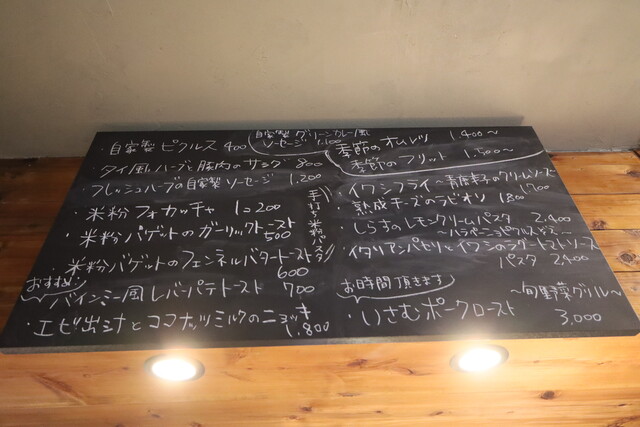 ・自家製ピクルス 400
自家製グリーンカレー風
ソーセージ 1,100
・タイ風ハーブと豚肉のサラダ 800
・フレッシュハーブの自家製ソーセージ 1,200
・米粉フォカッチャ 1コ 200
・米粉バゲットのガーリックトースト
500
・米粉バゲットのフェンネルバタートースト
600
おすすめ
・バインミー風レバーパテトースト 700
・エビ出汁とココナッツミルクのニョッキ
1,800
手打ち米粉パスタ
季節のオムレツ 1,400〜
季節のフリット 1,300〜
・イワシフライ〜青唐辛子のクリームソース
1,700
・熟成チーズのラビオリ 1800
・しらすのレモンクリームパスタ 2,400
〜ハラペーニョピクルス
・イタリアンパセリとイワシのラグートマトソース
パスタ 2,400
お時間頂きます
・いさむポークロースト
〜旬野菜グリル〜
3,000